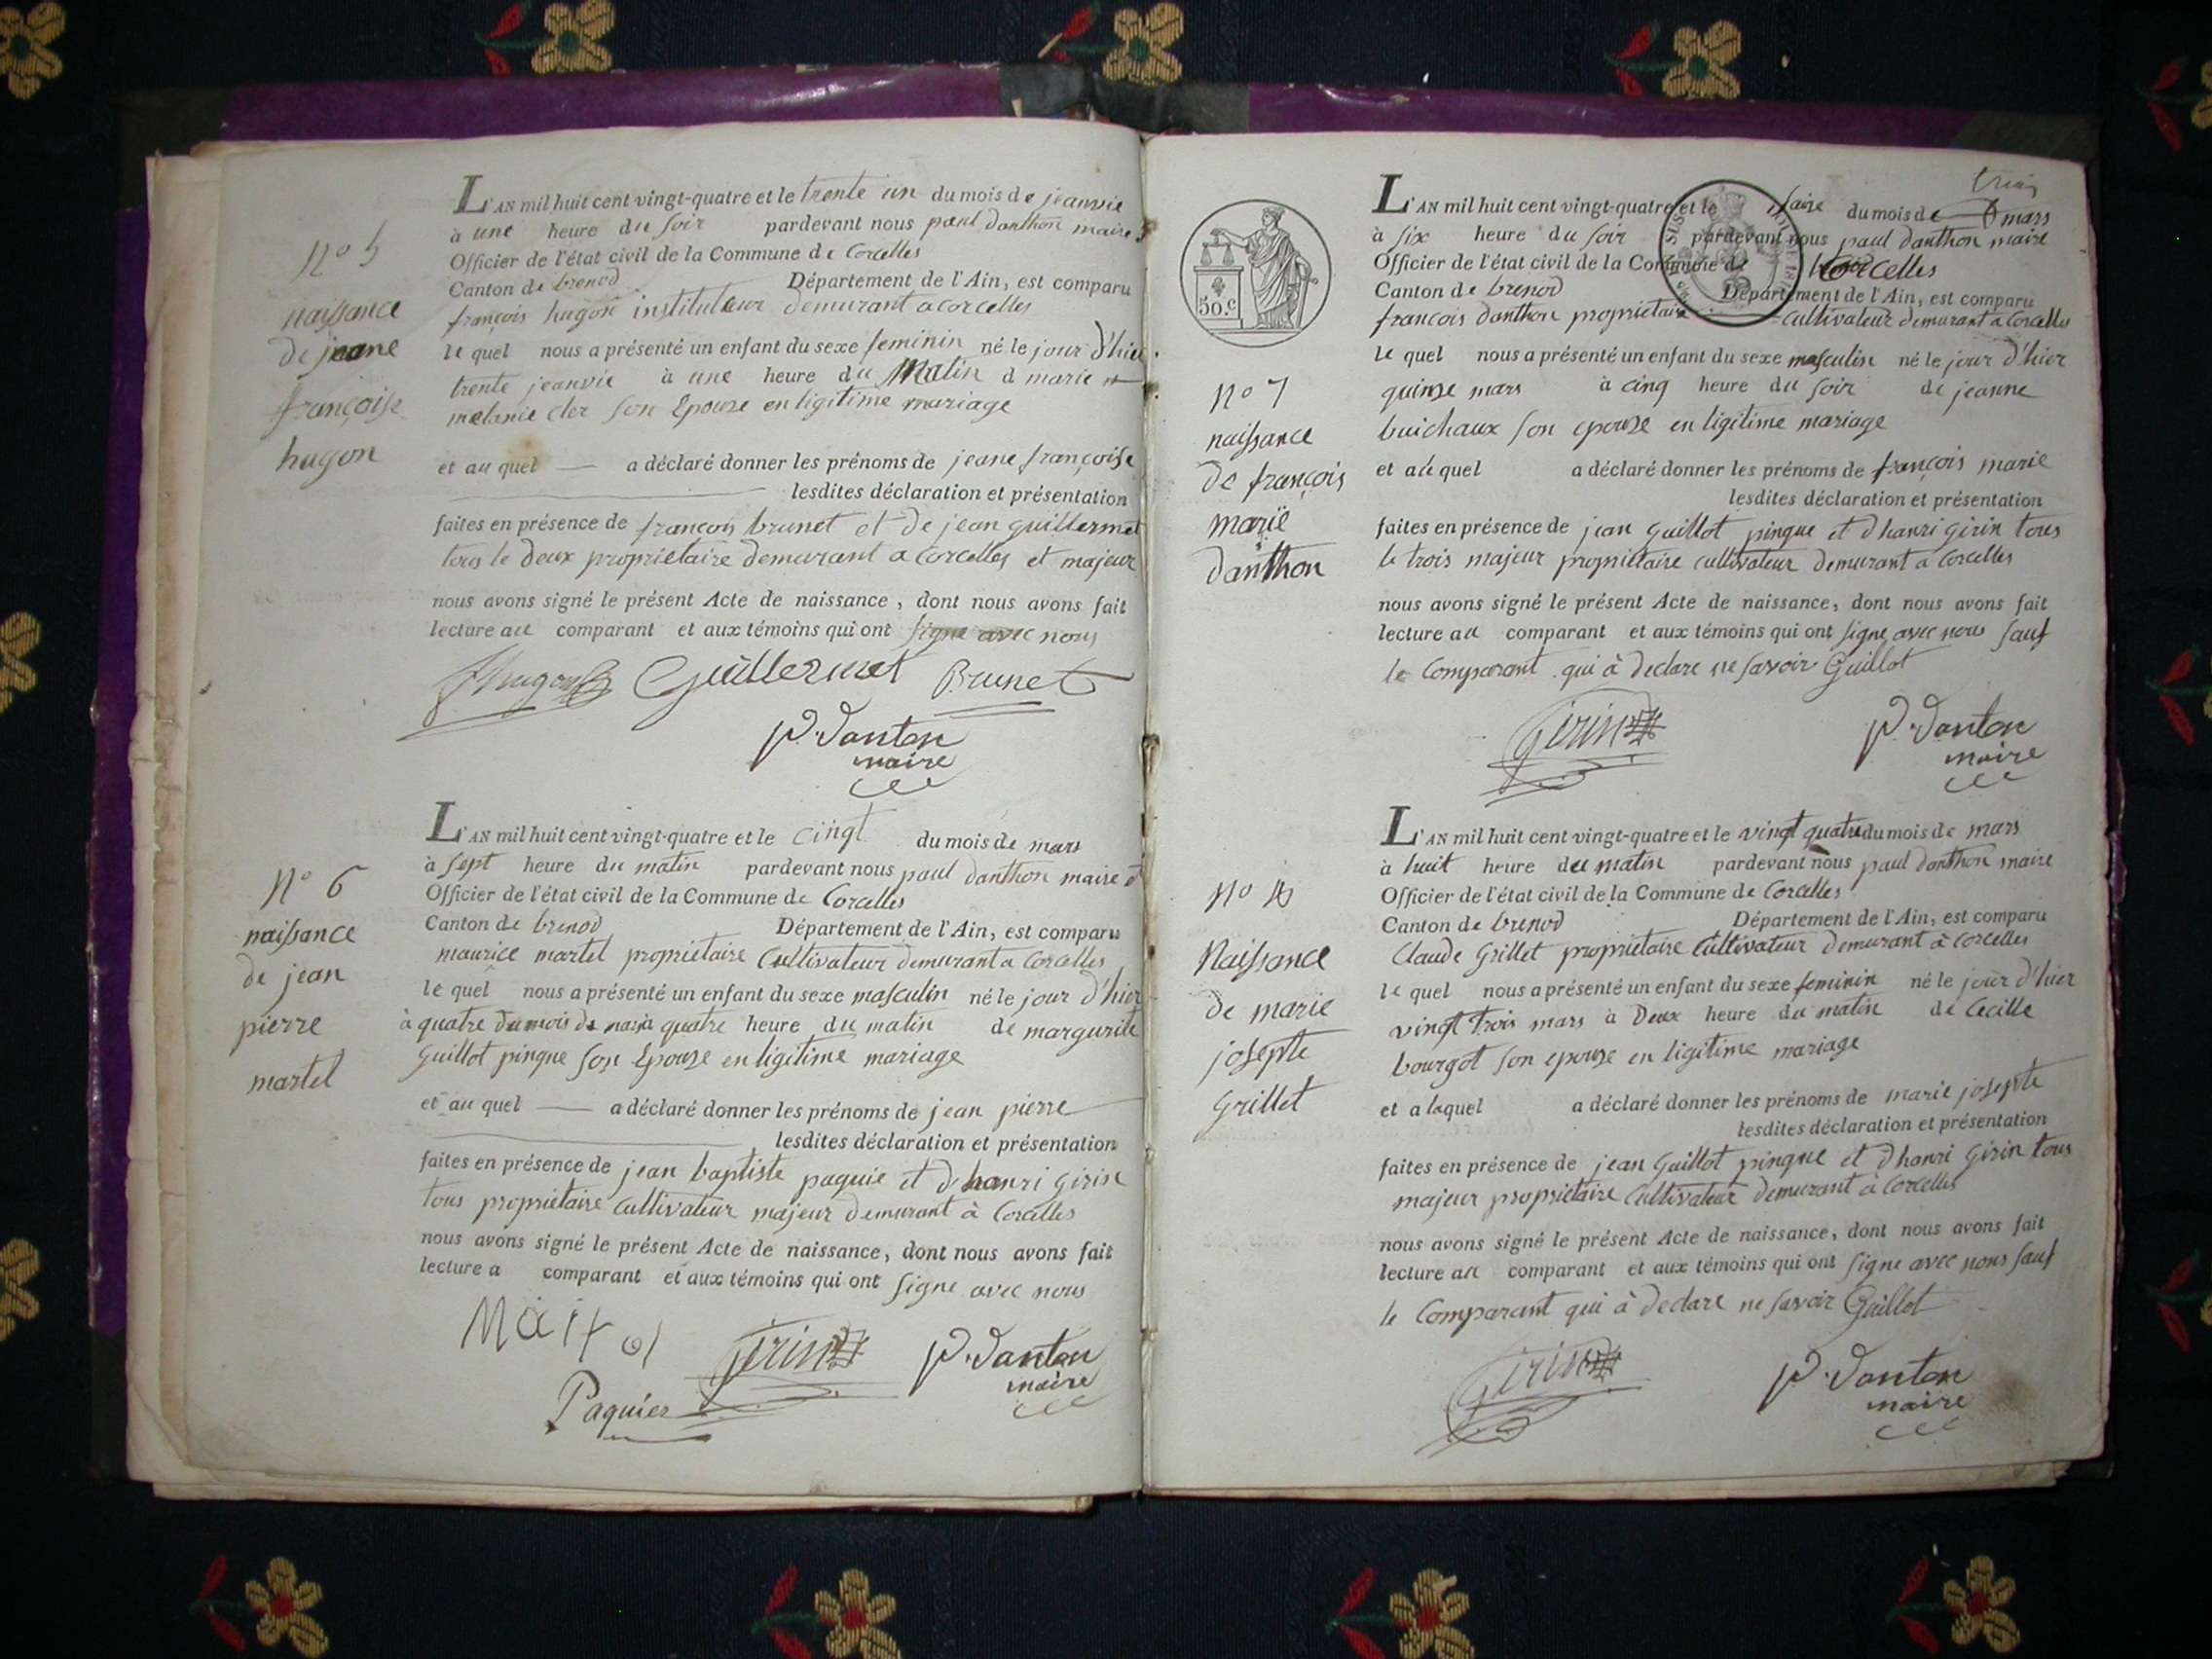 L'AN mil huit cent vingt-quatre et le trente un du mois de jeanvie
à une heure du soir pardevant nous paul danthon maire
Officier de l'état civil de la Commune de Corcelles
Canton de brenod Département de l'Ain, est comparu
françois hugon instituteur demurant a corcelles
le quel nous a présenté un enfant du sexe feminin né le jour d'hier
trente jeanvie à une heure du Matin d marie
melanie cler son Epouse en ligitime mariage
et au quel a déclaré donner les prénoms de jeane françoise
lesdites déclaration et présentation
faites en présence de francois brunet et de jean guillermet
tous le deux proprietaire demurant a Corcelles et majeur
nous avons signé le présent Acte de naissance, dont nous avons fait
lecture au comparant et aux témoins qui ont signe avec nous
N° 5
naissance
de jeane
françoise
hugon
hugon Guillermet Brunet
P. Danton
maire
L'AN mil huit cent vingt-quatre et le cinqt du mois de mars
à sept heure du matin pardevant nous paul danthon maire
Officier de l'état civil de la Commune de Corcelles
Canton de brenod Département de l'Ain, est comparu
maurice martel proprietaire Cultivateur demurant a Corcelles
le quel nous a présenté un enfant du sexe masculin né le jour d'hier
à quatre du mois de mars à quatre heure du matin de margurite
Guillot pingue son Epouse en ligitime mariage
et au quel a déclaré donner les prénoms de jean pierre
lesdites déclaration et présentation
faites en présence de jean baptiste paquie et d'hanri girin
tous propriétaire Cultivateur majeur demurant à Corcelles
nous avons signé le présent Acte de naissance, dont nous avons fait
lecture a comparant et aux témoins qui ont signe avec nous
N° 6
naissance
de jean
pierre
martel
Girin P. Danton
maire
Paquier
50.c
L'AN mil huit cent vingt-quatre et le saize du mois de mars
à six heure du soir pardevant nous paul danthon maire
Officier de l'état civil de la Commune de Corcelles
Canton de brenod Département de l'Ain, est comparu
francois danthon proprietaire cultivateur demurant a Corcelles
le quel nous a présenté un enfant du sexe masculin né le jour d'hier
quinse mars à cinq heure du soir de jeanne
buichaux son epouse en ligitime mariage
et au quel a déclaré donner les prénoms de françois marie
lesdites déclaration et présentation
faites en présence de jean Guillot pingue et d hanri girin tous
le trois majeur propriétaire cultivateur demurant a Corcelles
nous avons signé le présent Acte de naissance, dont nous avons fait
lecture au comparant et aux témoins qui ont signe avec nous sauf
le Comparant qui à declare ne savoir Guillot
N° 7
naissance
de françois
marie
danthon
Girin P. Danton
maire
L'AN mil huit cent vingt-quatre et le vingt quatre du mois de mars
à huit heure du matin pardevant nous paul danthon maire
Officier de l'état civil de la Commune de Corcelles
Canton de brenod Département de l'Ain, est comparu
Claude Grillet propriétaire Cultivateur demurant à Corcelles
le quel nous a présenté un enfant du sexe feminin né le jour d'hier
vingt trois mars à Deux heure du matin de Cecille
bourgot son epouse en ligitime mariage
et a laquel a déclaré donner les prénoms de marie josepte
lesdites déclaration et présentation
faites en présence de jean Guillot pingue et d hanri Girin tous
majeur propriétaire Cultivateur demurant à Corcelles
nous avons signé le présent Acte de naissance, dont nous avons fait
lecture au comparant et aux témoins qui ont signe avec nous sauf
le Comparant qui à declare ne savoir Guillot
N°
Naissance
de marie
josepte
Grillet
Girin P. Danton
maire